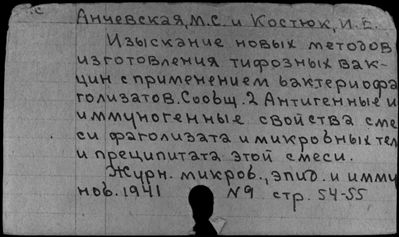 Анчевская, М.С. и Костюк, И.Е.
Изыскание новых методов
изготовления тифозных вак-
цин с применением бактериофа
голизатов. Сообщ. 2 Антигенные и
иммуногенные свойства сме
си фаголизата и микробных тел
и преципитата этой смеси.
Журн. микроб., эпид. и имму
нов. 1941 № 9 стр. 54-55